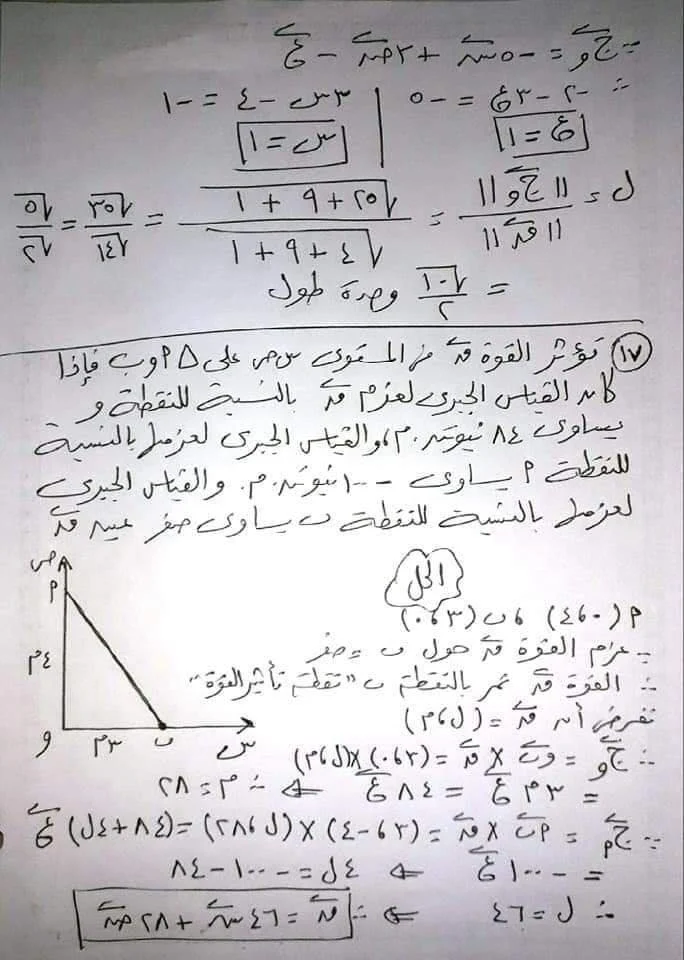 ∵ جـ و = -٥ س + ٣ ص - ع
∴ -٢ - ٣ع = -٥ | ٣س - ٤ = -١
ع = ١ | س = ١
ل = ||جـ و|| / ||ق|| = √(٢٥ + ٩ + ١) / √(٤ + ٩ + ١) = √٣٥ / √١٤ = √٥ / √٢
= √١٠ / ٢ وحدة طول
(١٧) تؤثر القوة ق فى المستوى س ص على Δ ٢ و ب فإذا
كان القياس الجبرى لعزم ق بالنسبة للنقطة و
يساوى ٨٤ نيوتن.م، والقياس الجبرى لعزمها بالنسبة
للنقطة ٢ يساوى -١٠٠ نيوتن.م. والقياس الجبرى
لعزمها بالنسبة للنقطة ب يساوى صفر عين ق
الحل
٢ (٠، ٤) ، ب (٣، ٠)
∵ عزم القوة ق حول ب = صفر
∴ القوة ق تمر بالنقطة ب "نقطة تأثير القوة"
نفرض أن ق = (ل، م)
∴ جـ و = و ب × ق = (٣، ٠) × (ل، م)
= ٣م ع = ٨٤ ع ⇐ ∴ م = ٢٨
∵ جـ ٢ = ٢ب × ق = (٣، -٤) × (ل، ٢٨) = (٨٤ + ٤ل) ع
= -١٠٠ ع ⇐ ٤ل = -١٠٠ - ٨٤
∴ ل = -٤٦ ⇐ ∴ ق = -٤٦ س + ٢٨ ص
ص
٢
٤م
و
٣م
ب
س